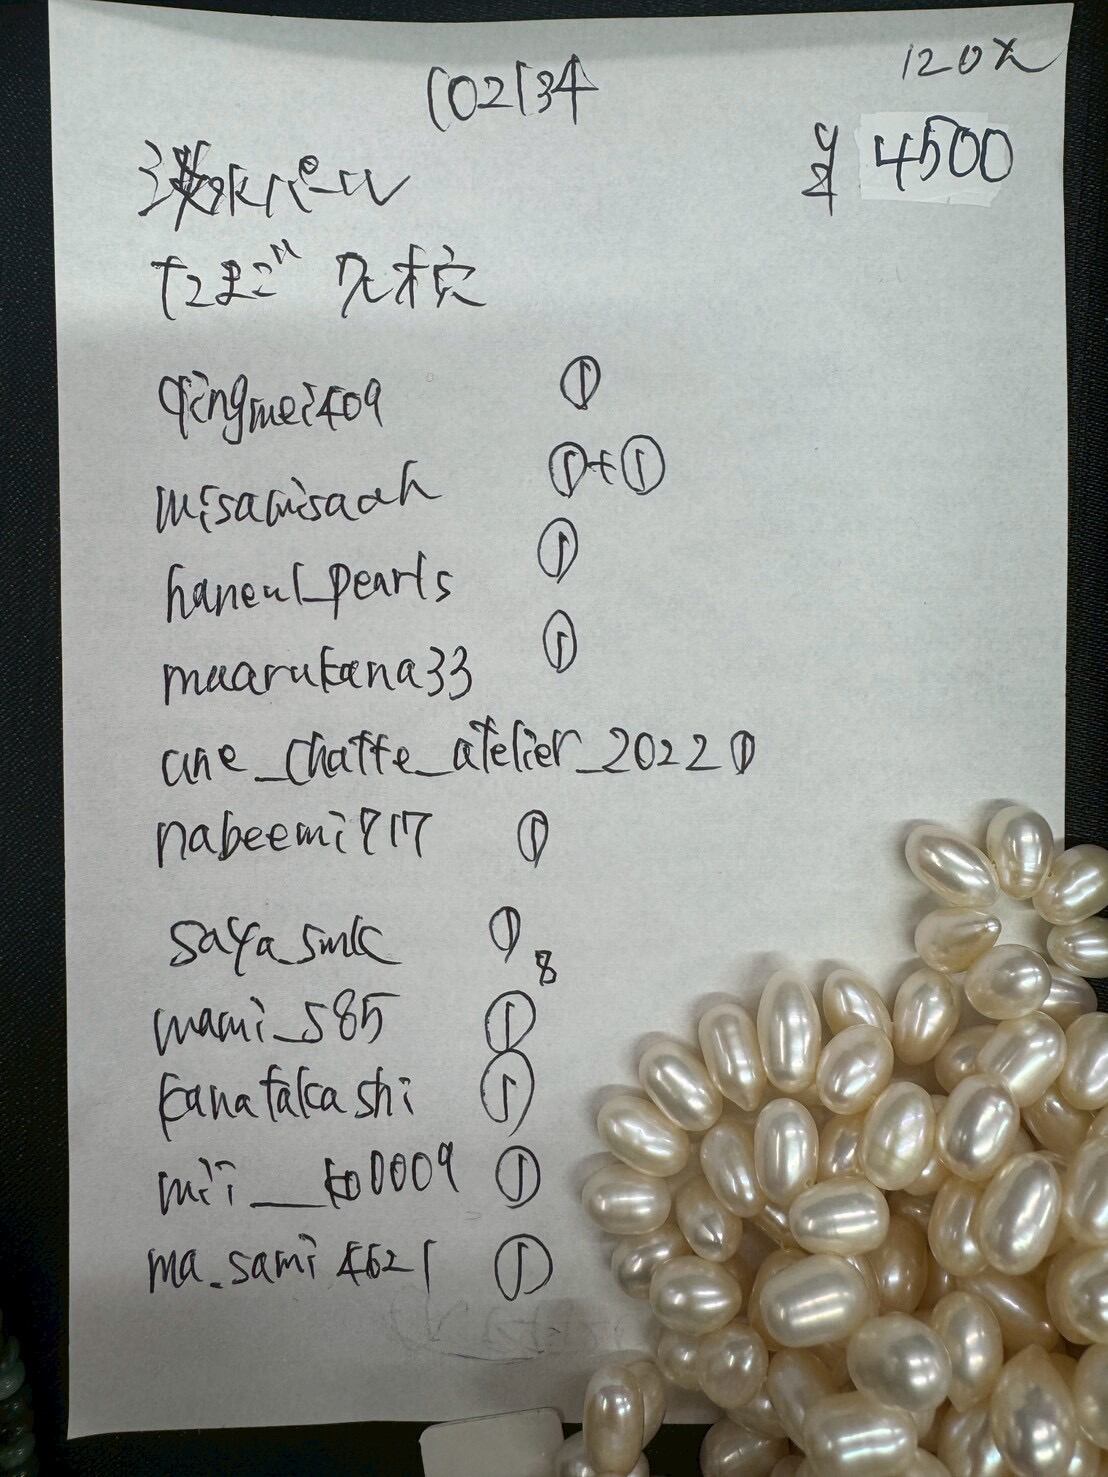 102134
120元
¥4500
淡水パール
たまご 尺横穴
qingmei409 ①
misamisaah ①+①
haneul_pearls ①
maarukana33 ①
une_chatte_atelier_2022 ①
nabeemi717 ①
saya_smk ①
8
mami_s85 ①
kanatakashi ①
mii__ko0009 ①
ma.sami4621 ①